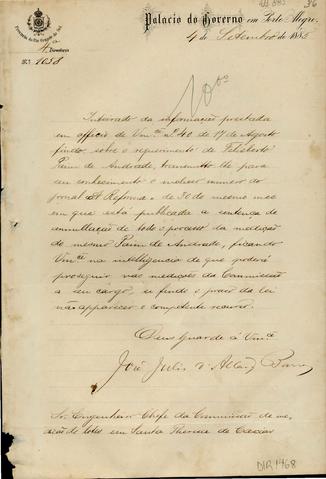 Palacio do Governo em Porto Alegre,
4 de Setembro de 1885
Provincia do Rio Grande do Sul
4ª Directoria
Nº 1058
36
Inteirado da informação prestada
em officio de Vmcê nº 40 de 17 de Agosto
findo sobre o requerimento de Felisberto
Paim de Andrade, transmitto-lhe para
seu conhecimento o incluso numero do
jornal "A Reforma" de 30 do mesmo mez
em que está publicada a sentença de
annullação de todo o processo da medição
do mesmo Paim de Andrade, ficando
Vmcê na intelligencia de que poderá
proseguir nas medições da Commissão
a seu cargo, se findo o praso da lei
não apparecer o competente recurso.
Deus Guarde á Vmcê
José Julio d'Albuq. Barros
Sr. Engenheiro Chefe da Commissão de me-
dição de lotes em Santa Thereza de Caxias
DIR 1468